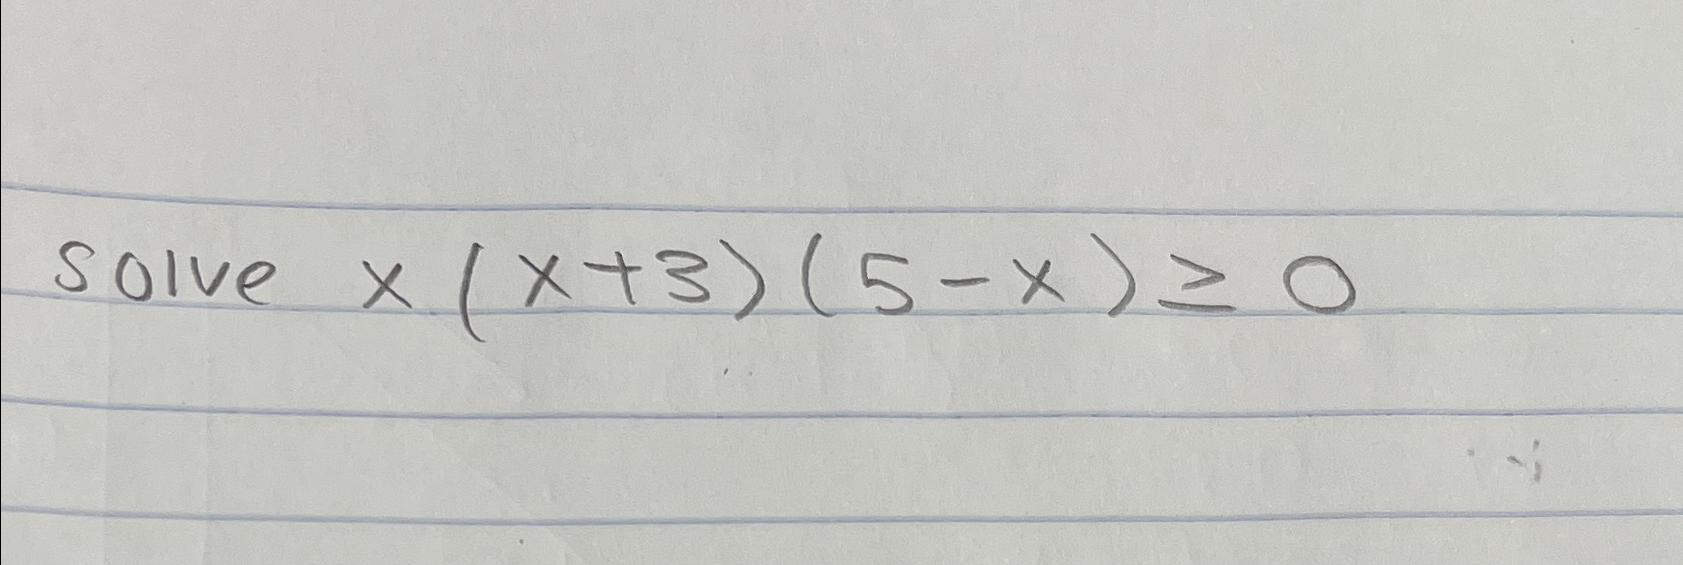 solve x(x+3)(5-x) ≥ 0